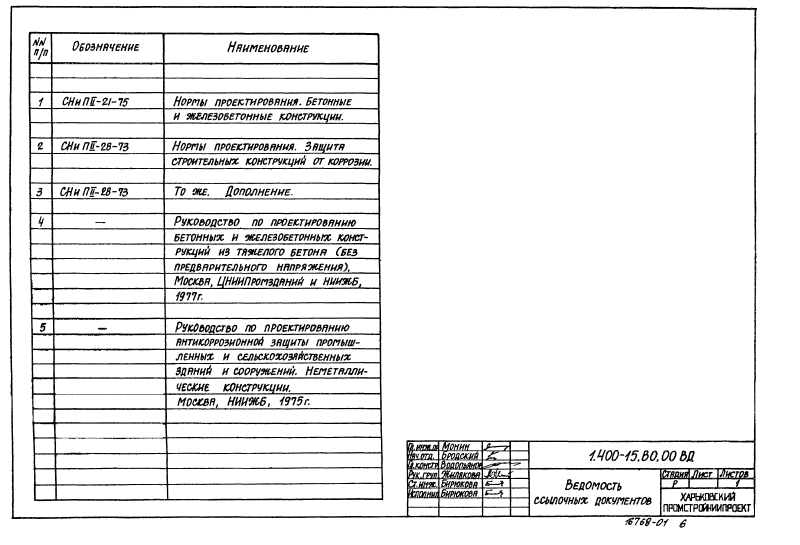 NN п/п Обозначение Наименование
1 СНиП II-21-75 Нормы проектирования. Бетонные
и железобетонные конструкции.
2 СНиП II-28-73 Нормы проектирования. Защита
строительных конструкций от коррозии.
3 СНиП II-28-73 То же. Дополнение.
4 — Руководство по проектированию
бетонных и железобетонных конст-
рукций из тяжелого бетона (без
предварительного напряжения),
Москва, ЦНИИПромзданий и НИИЖБ,
1977г.
5 — Руководство по проектированию
антикоррозионной защиты промыш-
ленных и сельскохозяйственных
зданий и сооружений. Неметалли-
ческие конструкции.
Москва, НИИЖБ, 1975г.
Гл.инж.пр Монин
Нач.отд. Бродский
Гл.констр Водопьянов
Рук.груп Жилякова
Ст.инж. Бирюкова
Исполнил Бирюкова
1.400-15.В0.00 ВД
Ведомость
ссылочных документов
Стадия Лист Листов
Р 1
ХАРЬКОВСКИЙ
ПРОМСТРОЙНИИПРОЕКТ
16768-01 6